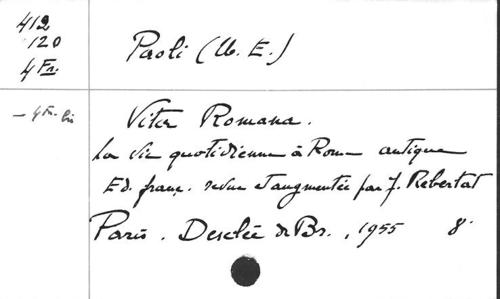 412
120
4 Fr.
Paoli (U. E.)
- 4 Fr. bis
Vita Romana.
La vie quotidienne à Rome antique
Ed. franç. revue et augmentée par J. Rebertat
Paris. Desclée de Br., 1955 8°